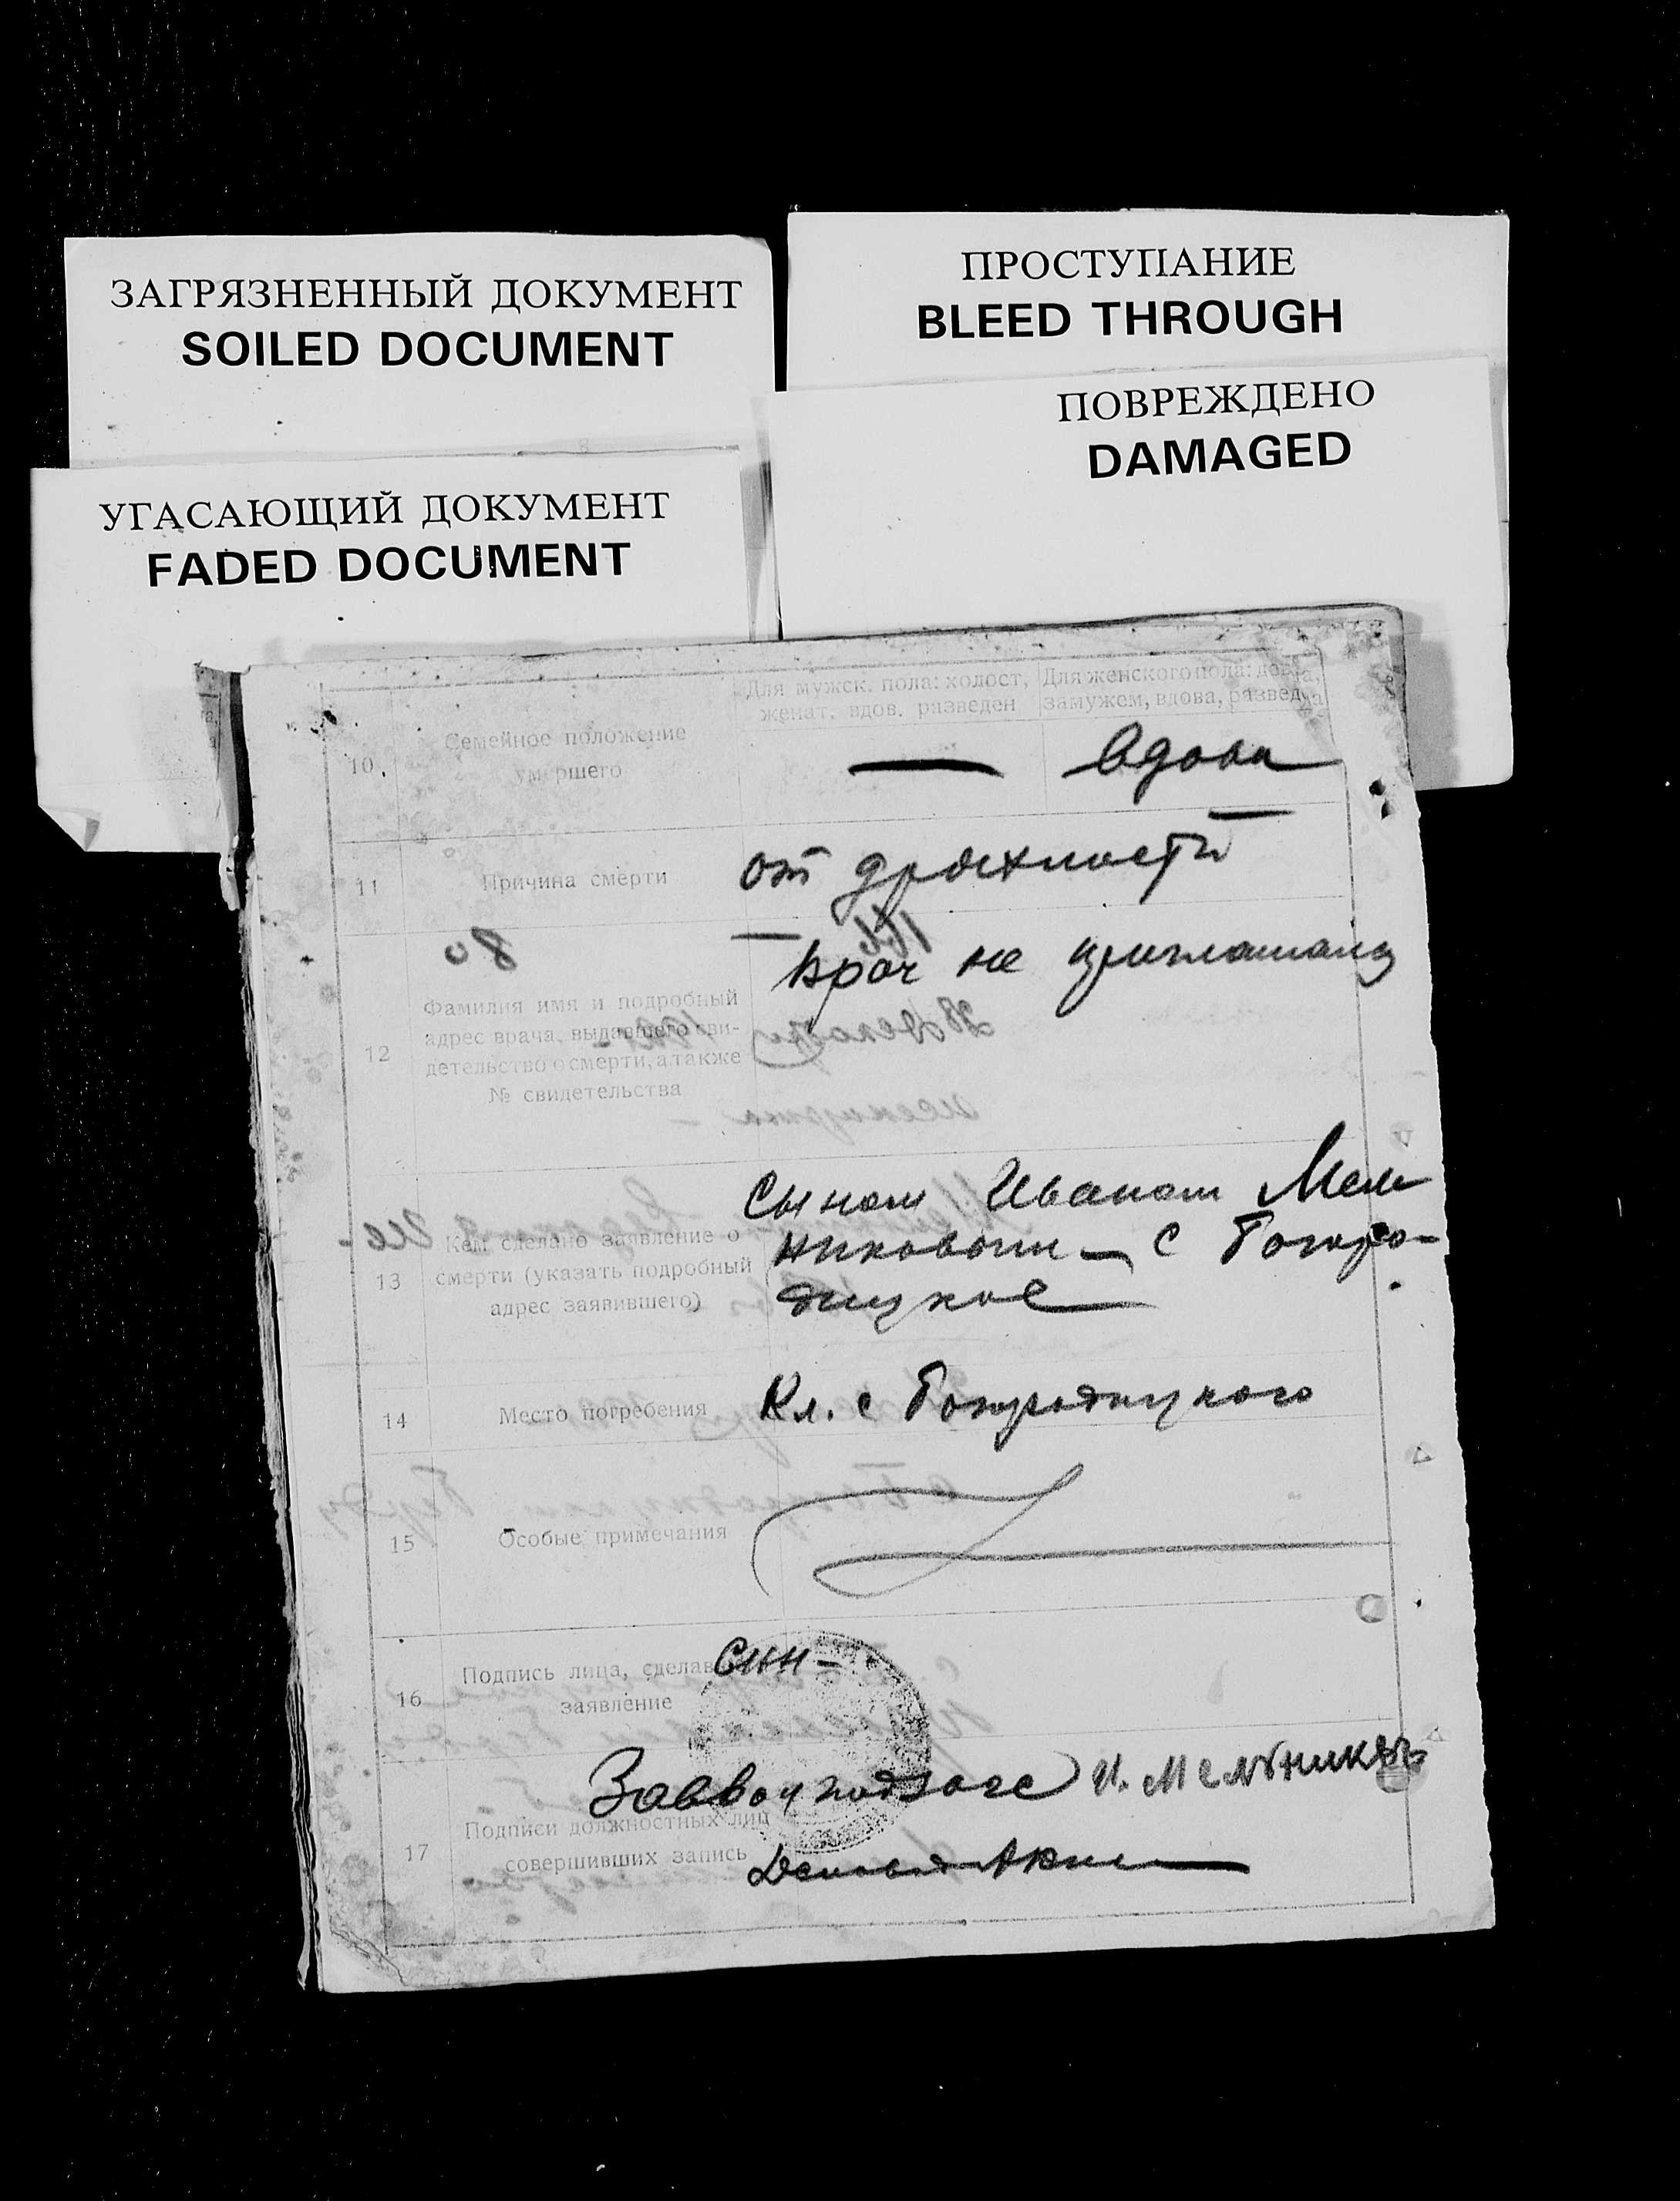 ЗАГРЯЗНЕННЫЙ ДОКУМЕНТ
SOILED DOCUMENT
ПРОСТУПАНИЕ
BLEED THROUGH
ПОВРЕЖДЕНО
DAMAGED
УГАСАЮЩИЙ ДОКУМЕНТ
FADED DOCUMENT
Для мужск. пола: холост,
женат, вдов, разведен
Для женского пола: девица,
замужем, вдова, разведена
10.
Семейное положение
умершего
— Вдова
11
Причина смерти
от дряхлости
80
12
Фамилия имя и подробный
адрес врача, выдавшего сви-
детельство о смерти, а также
№ свидетельства
Врач не приглашался
13
Кем сделано заявление о
смерти (указать подробный
адрес заявившего)
Сыном Иваном Мель
никовым — с Богоро-
дицкое
14
Место погребения
Кл. с Богородицкого
15
Особые примечания
16
Подпись лица, сделав
заявление
Сын –
И. Мельников
17
Подписи должностных лиц
совершивших запись
Делов